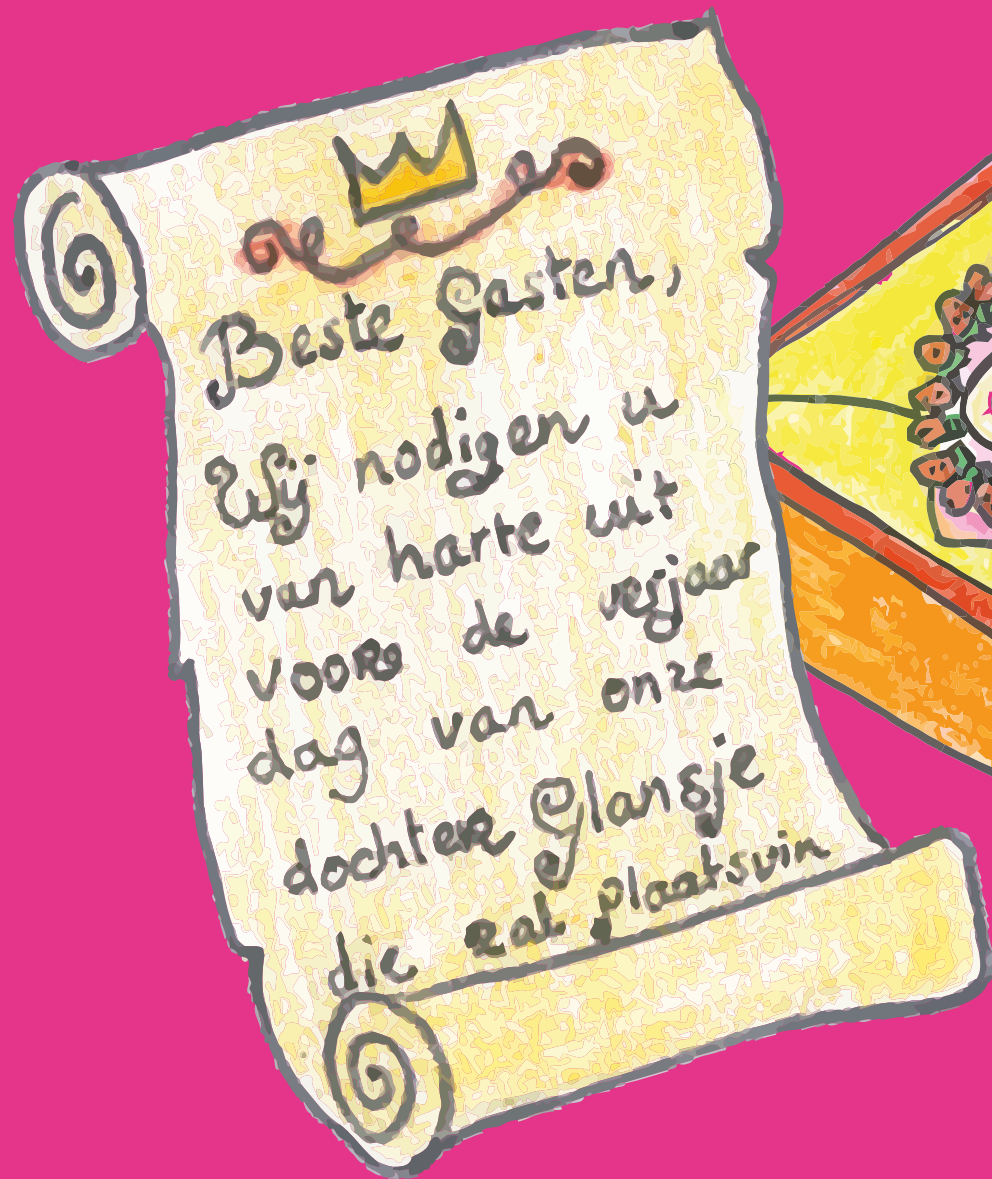 Beste Gasten,
Wij nodigen u
van harte uit
voor de verjaar
dag van onze
dochter Glansje
die zal plaatsvin